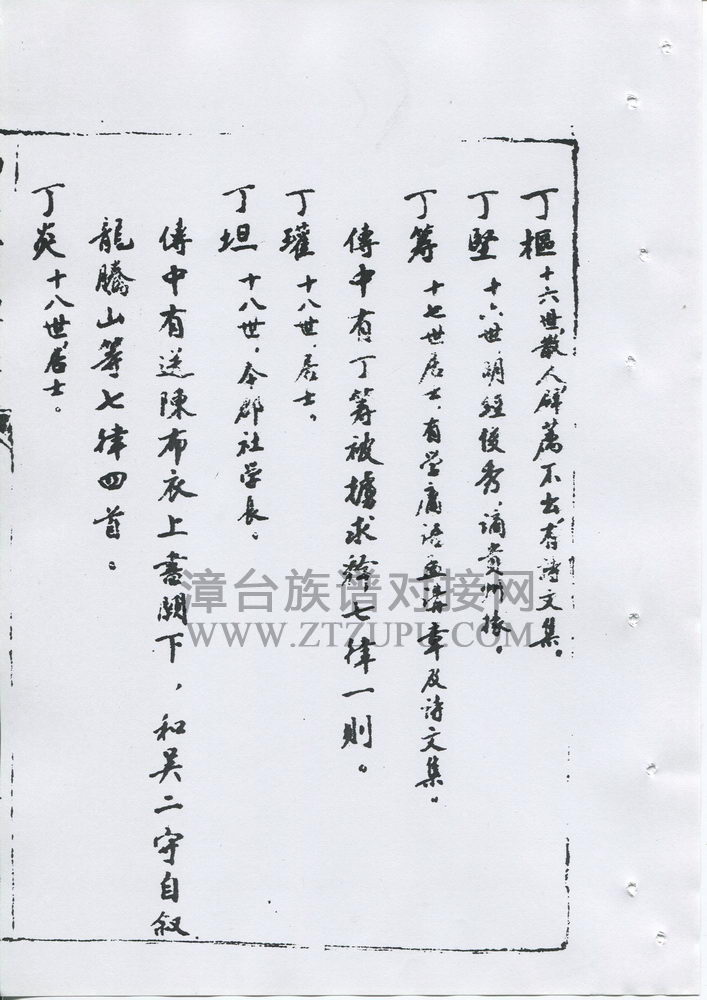 丁樞 十六世，散人，辟薦不出，有詩文集。
丁堅 十六世，明經俊秀，謫貴州掾。
丁筹 十七世居士，有学庸语孟讲章及詩文集。
傳中有丁筹被擄求 七律一則。
丁瓘 十八世，居士。
丁坦 十八世，本郡社学長。
傳中有送陳布衣上書闕下，和吴二守自叙
龍騰山等七律四首。
丁炎 十八世，居士。
漳台族谱对接网
WWW.ZTZUPU.COM